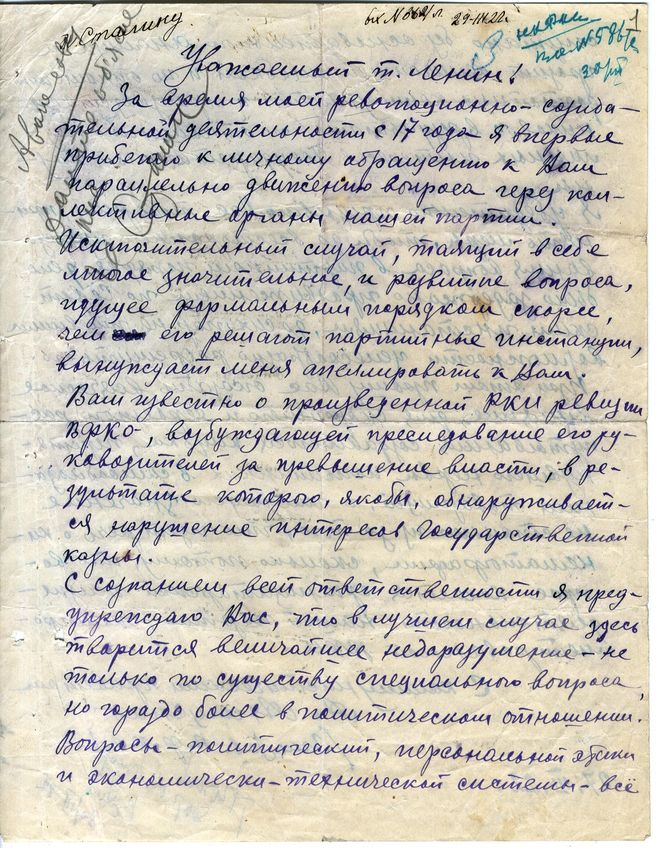 т. Сталину.
вх № 862/л. 29-III 22г.
1
Уважаемый т. Ленин!
За время моей революционно-созида-
тельной деятельности с 17 года я впервые
прибегаю к личному обращению к Вам
параллельно движению вопроса через кол-
лективные органы нашей партии.
Исключительный случай, таящий в себе
многое значительное, и развитие вопроса,
идущее формальным порядком скорее,
чем его решают партийные инстанции,
вынуждает меня апеллировать к Вам.
Вам известно о произведенной РКИ ревизии
ВФКО, возбуждающей преследование его ру-
ководителей за превышение власти, в ре-
зультате которого, якобы, обнаруживает-
ся нарушение интересов Государственной
казны.
С сознанием всей ответственности я пред-
упреждаю Вас, что в лучшем случае здесь
творится величайшее недоразумение – не
только по существу специального вопроса,
но гораздо более в политическом отношении.
Вопросы – политический, персональной этики
и экономически-технической системы – всё